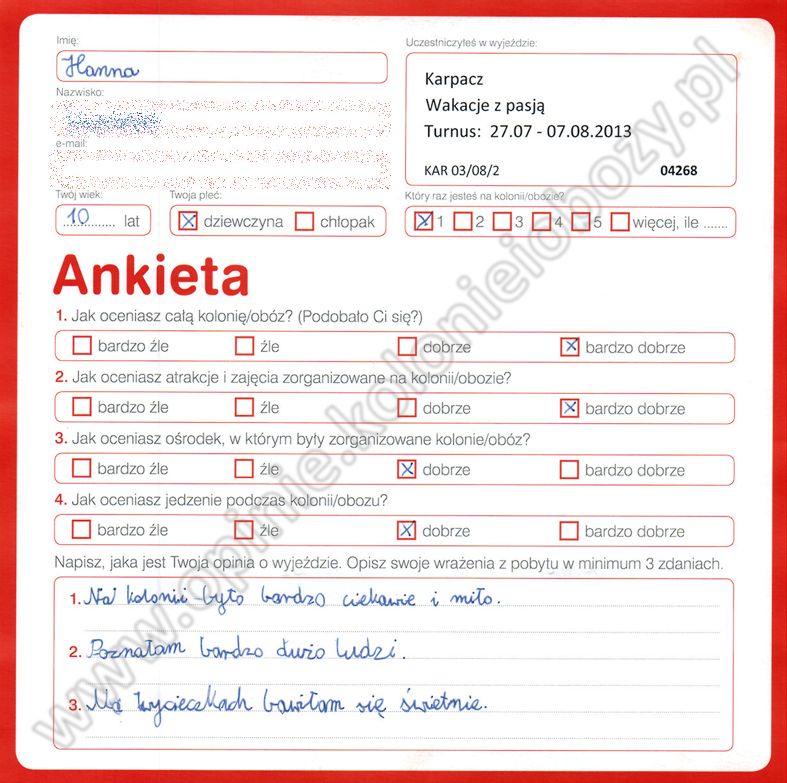 Imię:
Uczestniczyłeś w wyjeździe:
Hanna
Karpacz
Wakacje z pasją
Turnus: 27.07 - 07.08.2013
KAR 03/08/2 04268
Nazwisko:
e-mail:
Twój wiek:
Twoja płeć:
Który raz jesteś na kolonii/obozie?
10 lat
dziewczyna chłopak
1 2 3 4 5 więcej, ile .......
Ankieta
1. Jak oceniasz całą kolonię/obóz? (Podobało Ci się?)
bardzo źle źle dobrze bardzo dobrze
2. Jak oceniasz atrakcje i zajęcia zorganizowane na kolonii/obozie?
bardzo źle źle dobrze bardzo dobrze
3. Jak oceniasz ośrodek, w którym były zorganizowane kolonie/obóz?
bardzo źle źle dobrze bardzo dobrze
4. Jak oceniasz jedzenie podczas kolonii/obozu?
bardzo źle źle dobrze bardzo dobrze
Napisz, jaka jest Twoja opinia o wyjeździe. Opisz swoje wrażenia z pobytu w minimum 3 zdaniach.
1. Na kolonii było bardzo ciekawie i miło.
2. Poznałam bardzo dużo ludzi.
3. Na wycieczkach bawiłam się świetnie.
www.opinie.kolonieiobozy.pl